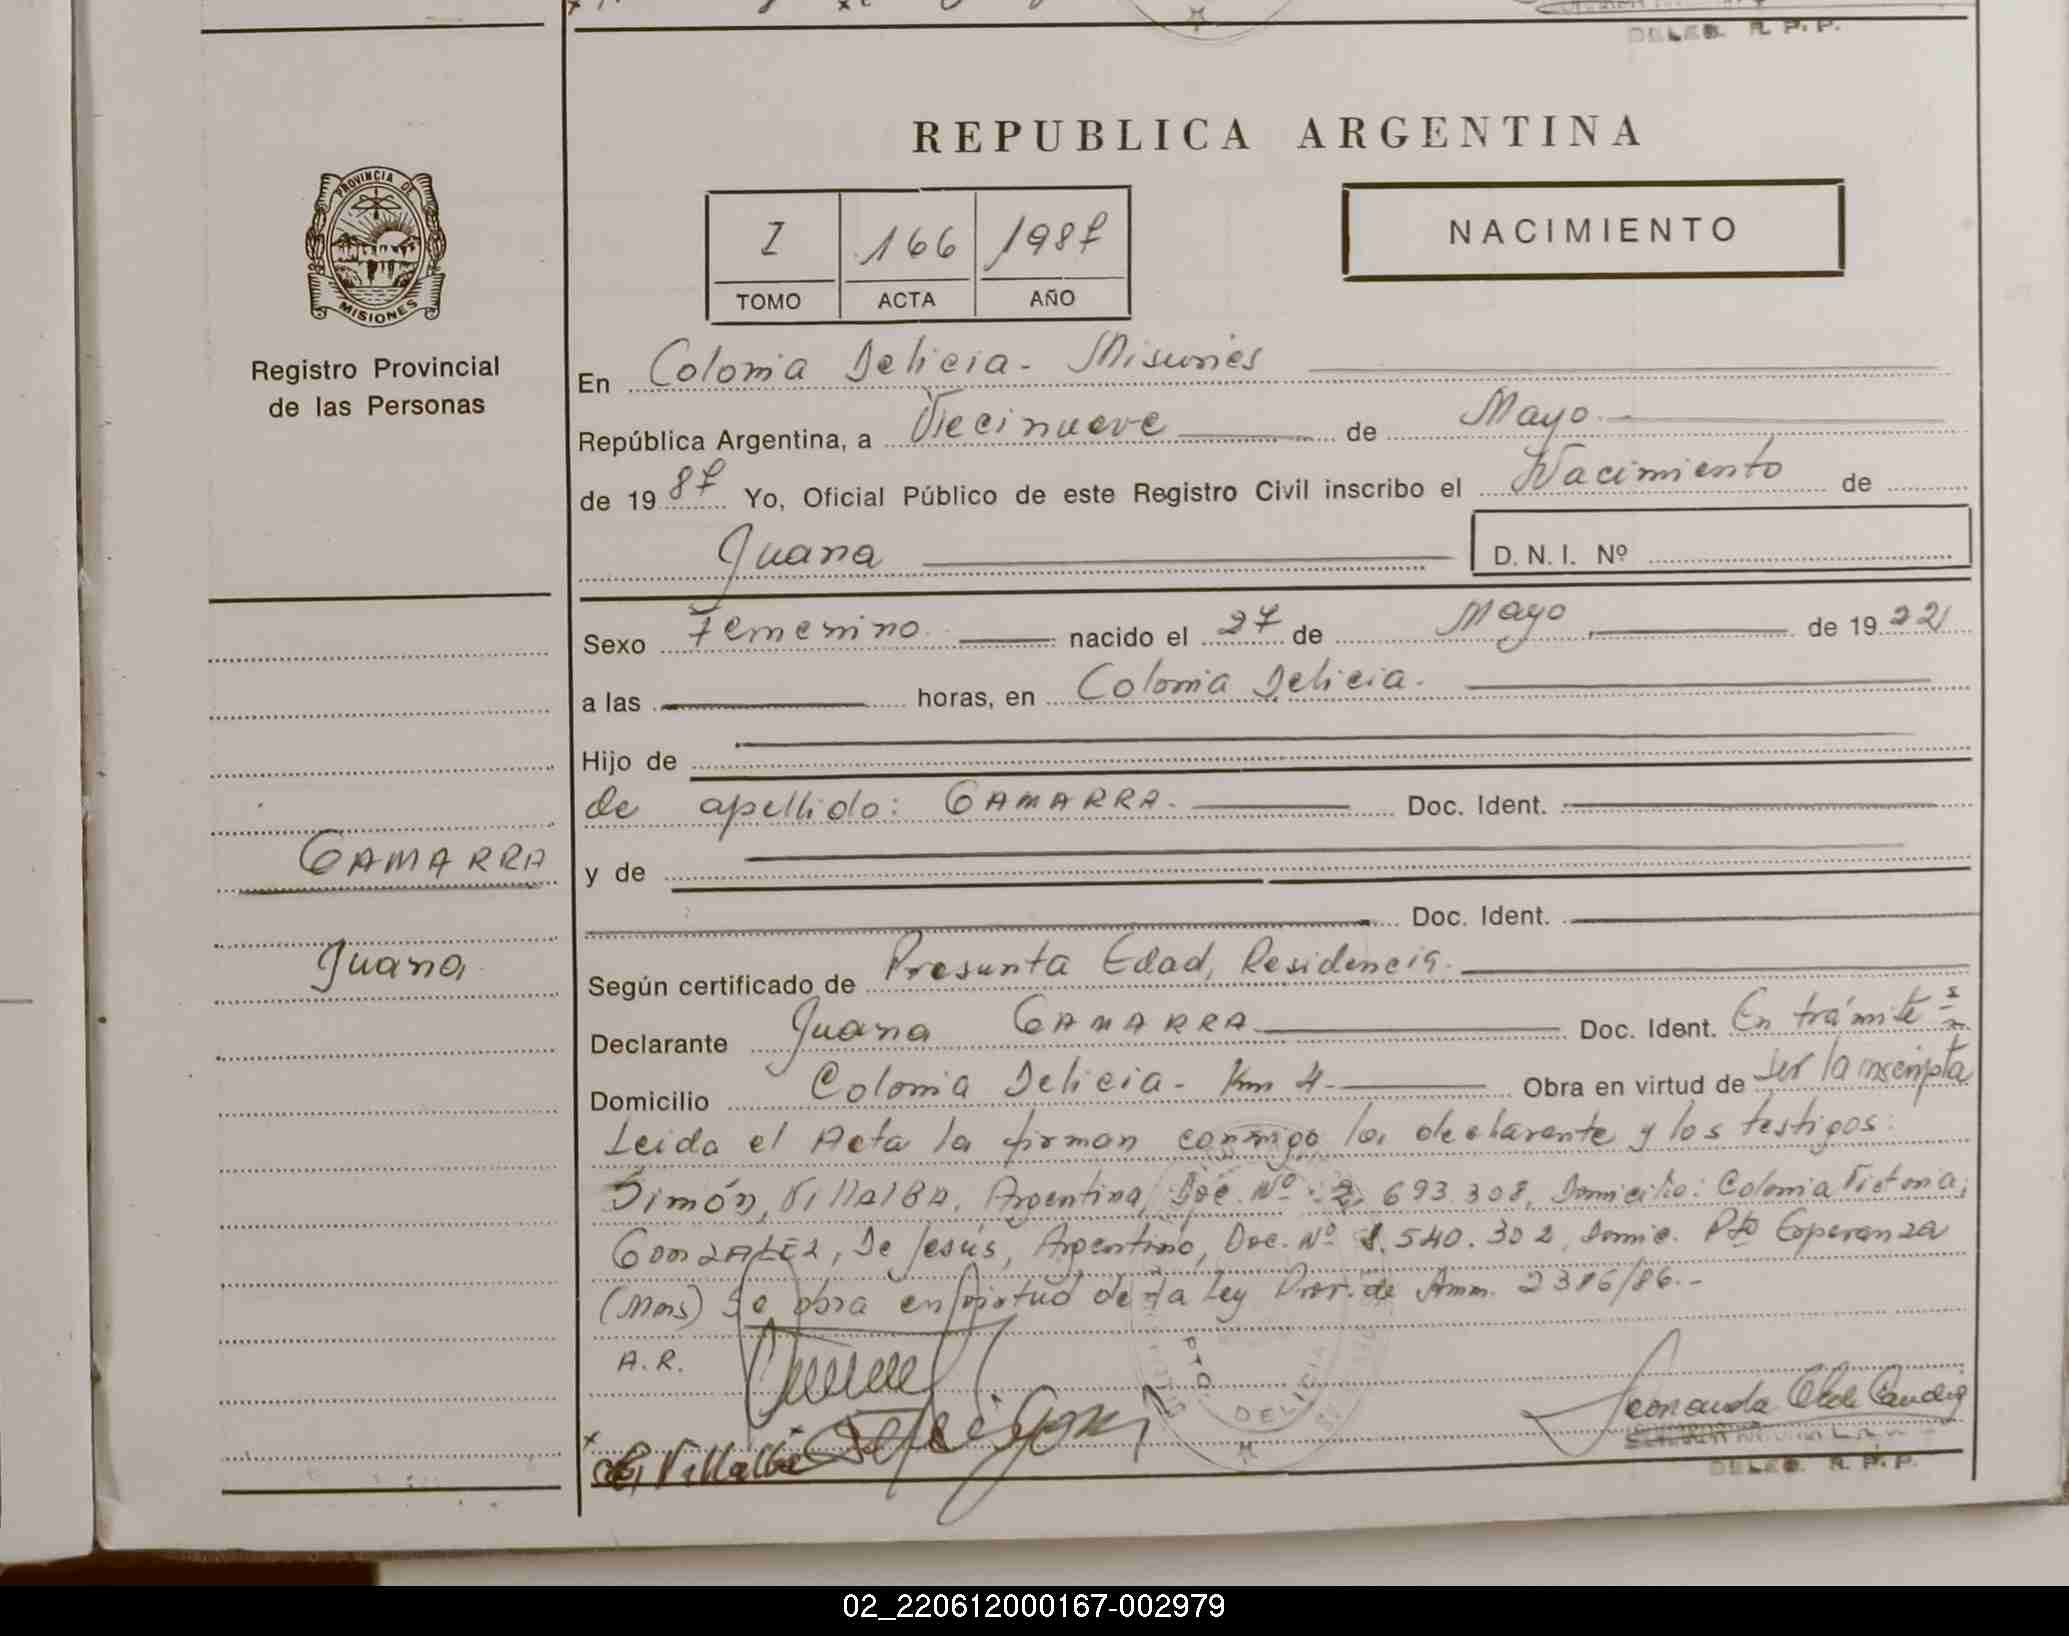 DELEG. R. P. P.
REPUBLICA ARGENTINA
PROVINCIA DE
MISIONES
I 166 1987
TOMO ACTA AÑO
NACIMIENTO
Registro Provincial
de las Personas
En Colonia Delicia - Misiones
República Argentina, a Diecinueve de Mayo
de 1987 Yo, Oficial Público de este Registro Civil inscribo el Nacimiento de
Juana D. N. I. Nº
Sexo Femenino nacido el 27 de Mayo de 1922
a las horas, en Colonia Delicia.
Hijo de
de apellido: GAMARRA. Doc. Ident.
y de
GAMARRA
Doc. Ident.
Juana
Según certificado de Presunta Edad, Residencia.
Declarante Juana GAMARRA Doc. Ident. En trámite
Domicilio Colonia Delicia - Km 4 - Obra en virtud de Ser la inscripta
Leida el Acta la firman conmigo la declarante y los testigos:
Simón, VillAlBA, Argentina, Doc. Nº 2.693.308, Domicilio: Colonia Victoria;
GonzALEZ, De Jesús, Argentino, Doc. Nº 8.540.302, Domic. Pto Esperanza
(Mnes) Se obra en virtud de la Ley Pror. de Amn. 2386/86.-
A.R.
PTO. DELICIA
Villalba
DELEG. R. P. P.
02_220612000167-002979